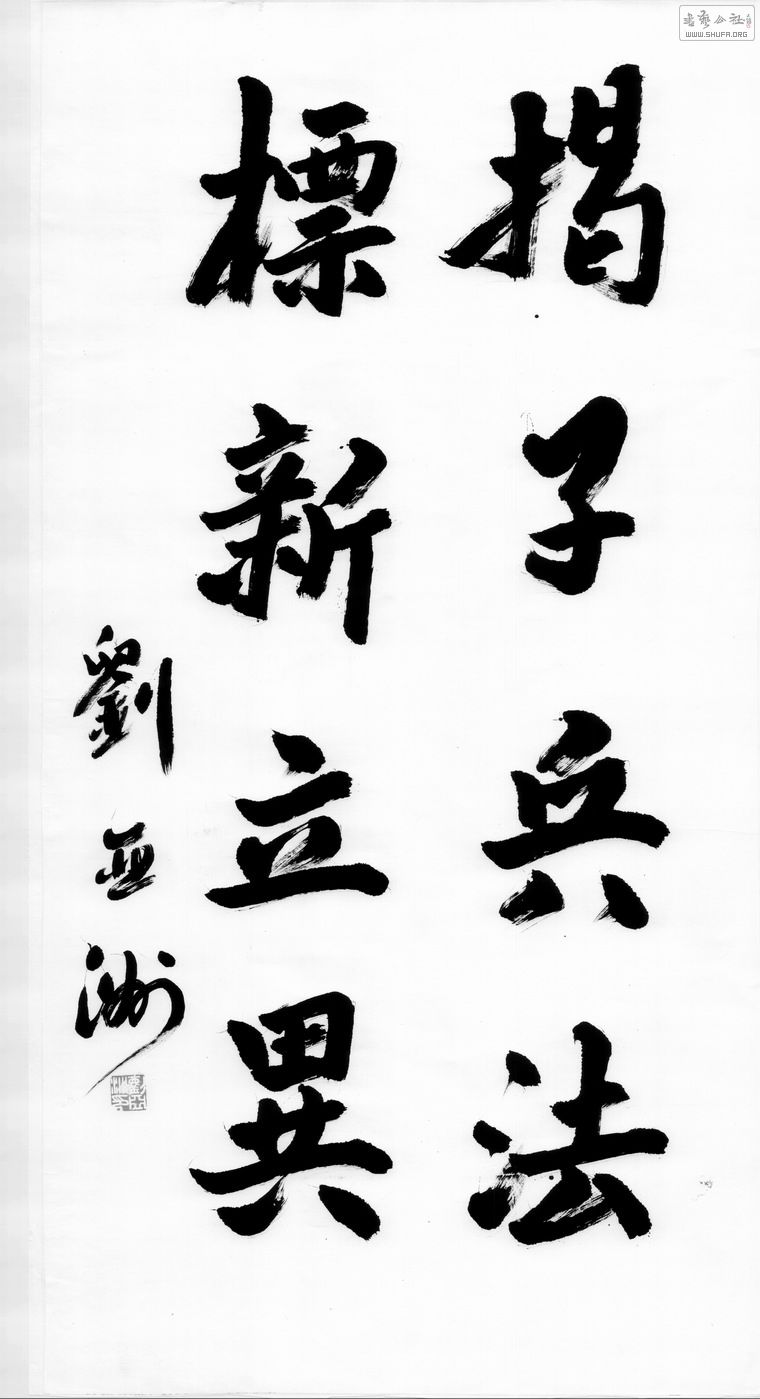 揭子兵法
標新立異
劉亞洲
書藝公社
WWW.SHUFA.ORG